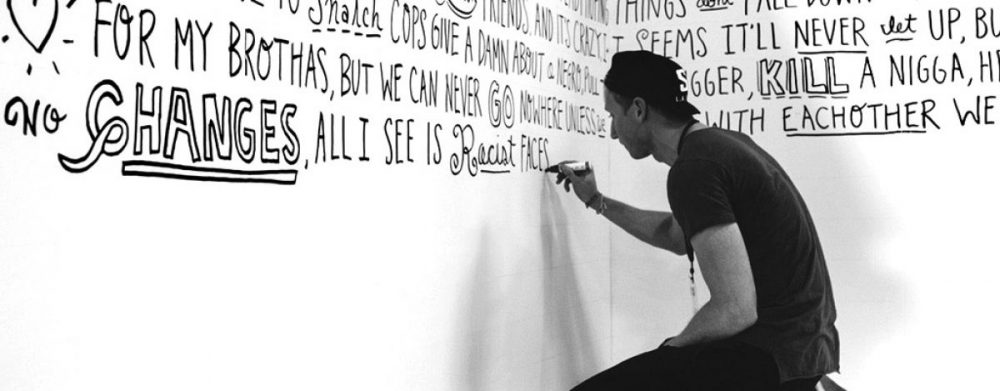 THINGS don't FALL DOWN
FRIENDS, AND ITS CRAZY IT SEEMS IT'LL NEVER let UP, BU
TO Snatch COPS GIVE A DAMN ABOUT a NEGRO, PULL GGER, KILL A NIGGA, HE
FOR MY BROTHAS, BUT WE CAN NEVER GO NOWHERE UNLESS WE WITH EACHOTHER WE
NO CHANGES, ALL I SEE IS Racist FACES